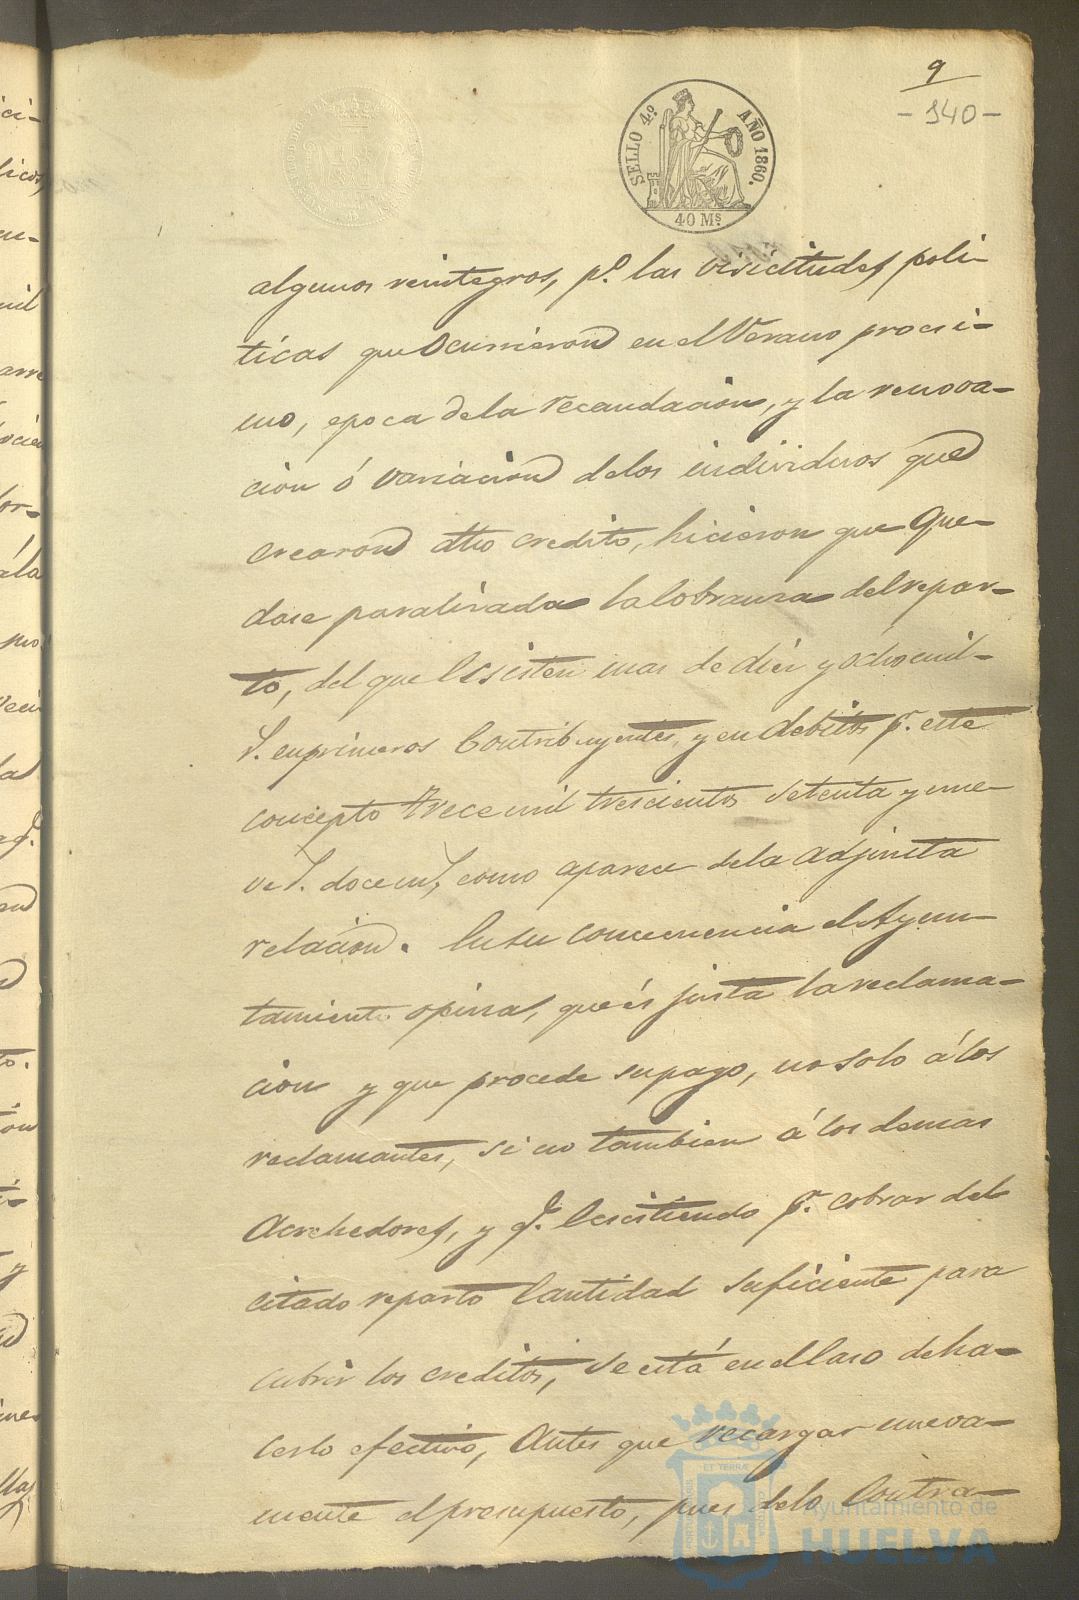 9
-140-
SELLO 4.º AÑO 1860.
40 Ms.
algunos reintegros, pº. las visicitudes poli-
ticas que Ocurrieron en el Verano procsi-
mo, epoca de la recaudacion, y la renova-
cion ó variacion de los individuos que
crearon dho credito, hicieron que Que-
dase paralizada la Cobranza del repar-
to, del que Ecsisten mas de diez y Ocho mil
en primeros Contribuyentes, y en debitos pr. este
concepto Trece mil trescientos setenta y nue-
ve doce como aparece de la adjunta
relacion. En su consecuencia el Ayun-
tamiento opina, que és justa la reclama-
cion y que procede su pago, no solo á los
reclamantes, si no tambien á los demas
Acrehedores, y q. Ecsistiendo pr. cobrar del
citado reparto Cantidad suficiente para
cubrir los creditos, se está en el Caso de ha-
cerlo efectivo, Antes que recargar nueva-
mente el presupuesto, pues de lo Contra-
Ayuntamiento de
HUELVA